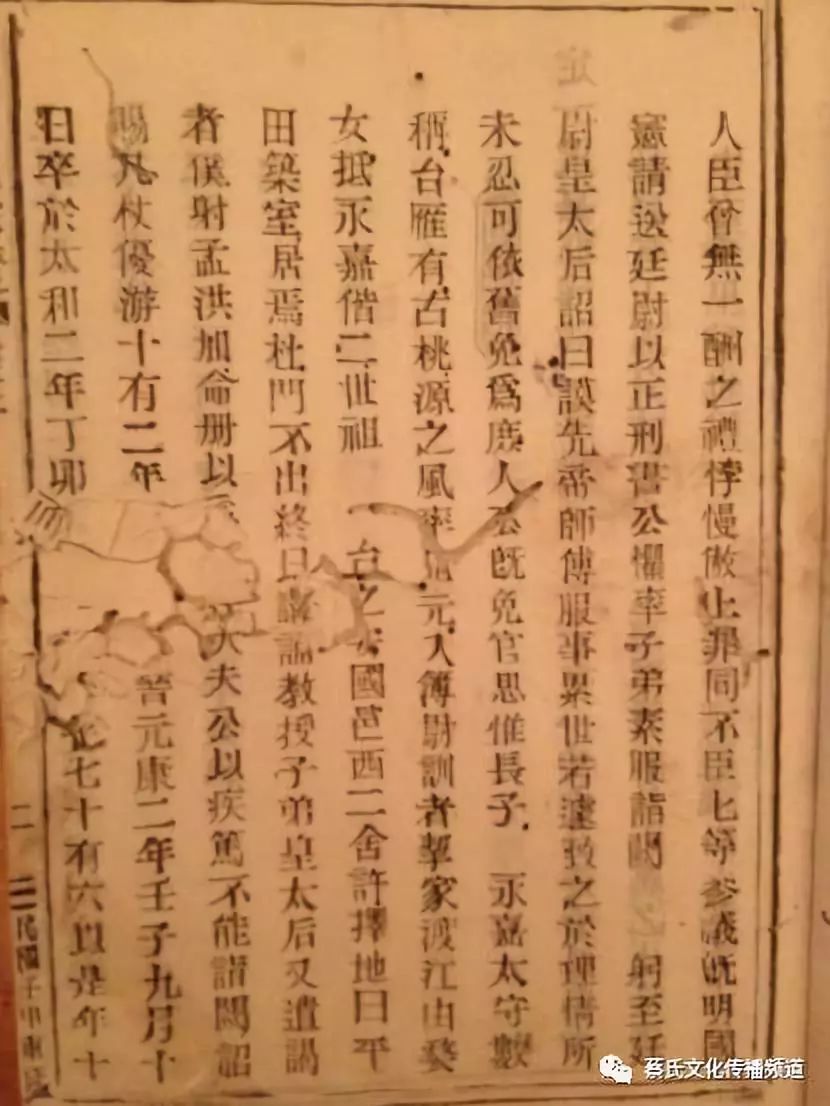 人臣曾無一酬之禮悖慢傲上罪同不臣臣等參議既明國
憲請送廷尉以正刑書公懼率子弟素服詣闕 躬至廷
尉皇太后詔曰謨先帝師傅服事累世若遽致之於理情所
未忍可依舊免為庶人公既免官思惟長子 永嘉太守數
稱台雁有古桃源之風率 元入簿尉訓者挈家渡江由婺
女抵永嘉偕二世祖 台之 國邑西二舍許擇地曰平
田築室居焉杜門不出終日講誦教授子弟皇太后又遣謁
者僕射孟洪加侖冊以 大夫公以疾篤不能詣闕詔
賜几杖優游十有二年 晉元康二年壬子九月十
日卒於太和二年丁卯 七十有六以是年十
二
民國壬申重
蔡氏文化传播频道